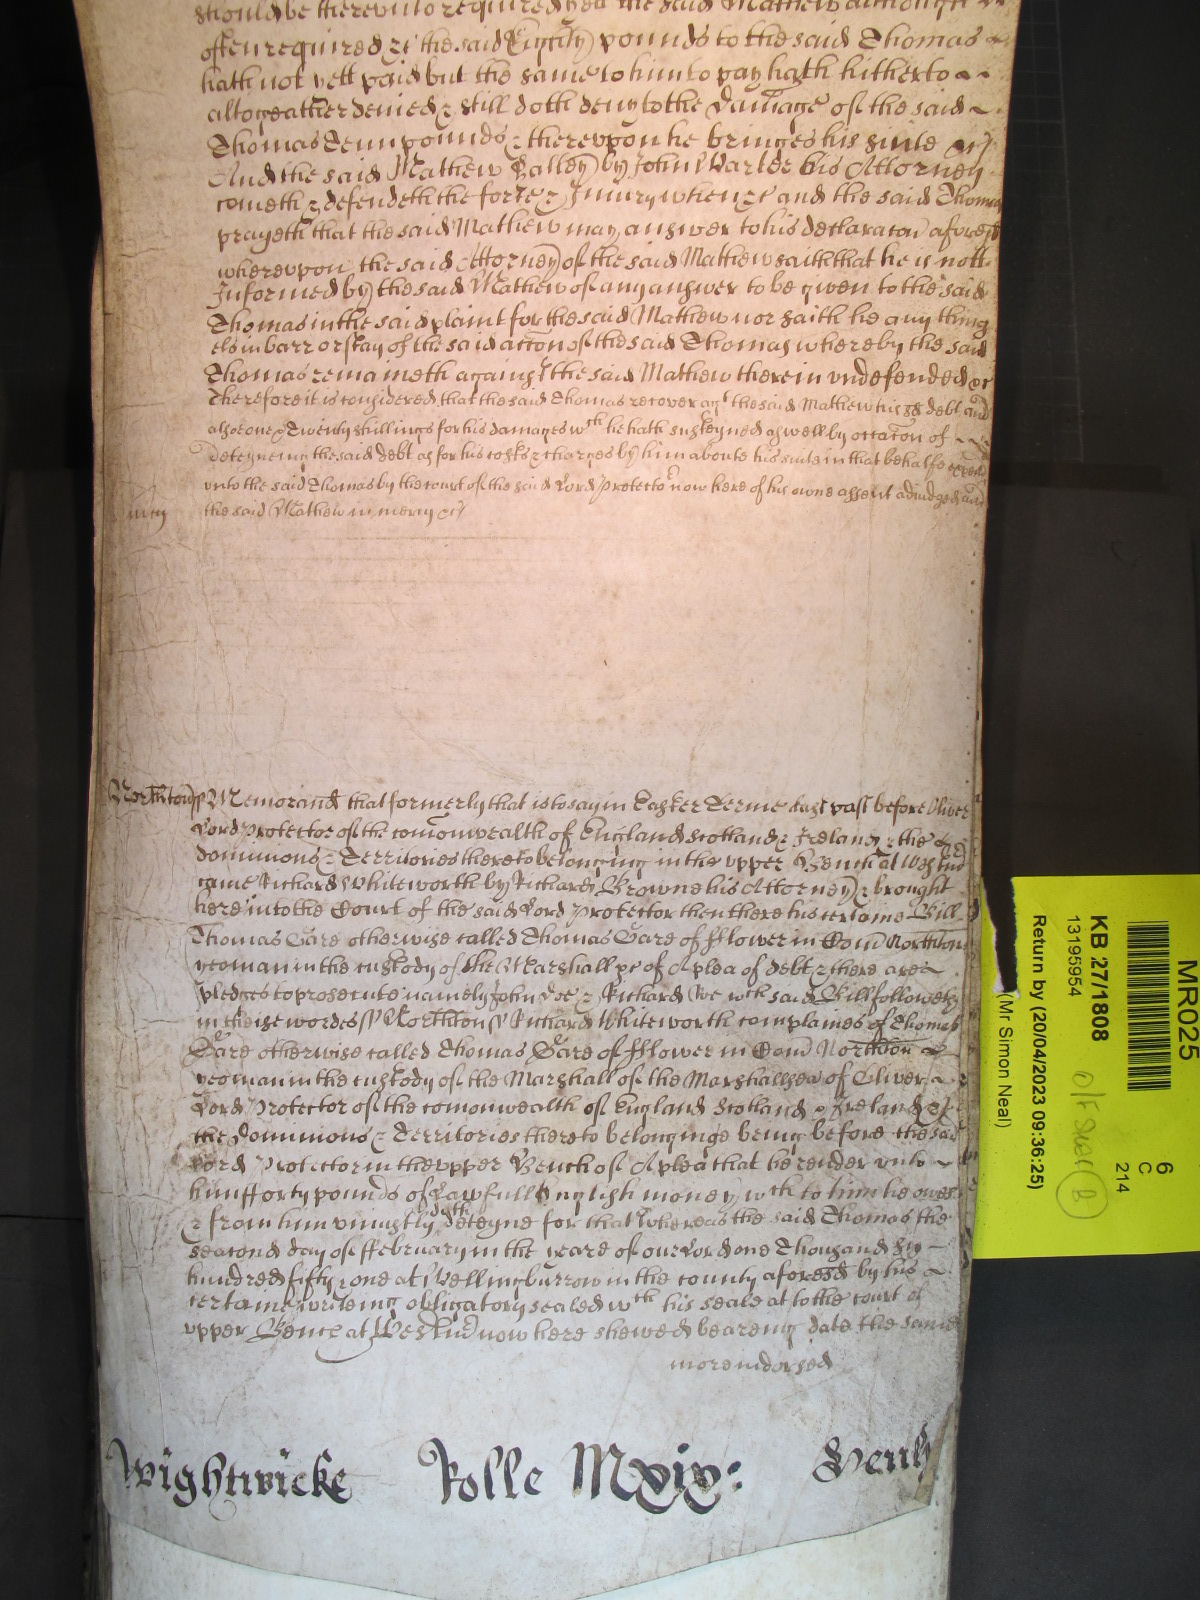 should be therevnto required yett the said Mathew although
often required &c the said Eighty pounds to the said Thomas
hath not yett paid but the same to him to pay hath hitherto
altogeather denied & still doth deny to the damage of the said
Thomas Tenn pounds & therevpon he bringes his suite &c
And the said Mathew by John his Attorney
cometh & defendeth the force & Iniury when &c and the said Thomas
prayeth that the said Mathew may answer to his declaracon aforesd
wherevpon the said Attorney of the said Mathew saith that he is nott
Informed by the said Mathew of any answer to be given to the said
Thomas in the said plaint for the said Mathew nor saith he any thing
els in barr or stay of the said accon of the said Thomas whereby the said
Thomas remaineth against the said Mathew therein vndefended &c
Therefore it is considered that the said Thomas recover agt the said Mathew his sd debt and
alsoe one & Twenty shillings for his damages wch he hath susteyned aswell by occacon of
deteyneing the said debt as for his costs & charges by him aboute his suite in that behalfe
vnto the said Thomas by the court of the said Lord Protector now here of his owne assent adiudged and
the said Mathew in mercy &c
mcy
Northton ss Memorand that formerly that is to say in Easter Terme last past before Oliver
Lord Protector of the comonwealth of England Scotland & Ireland & the
dominions & Territories thereto belonging in the vpper Bench at Westm
came Richard Whiteworth by Richard Browne his Attorney & brought
here into the Court of the said Lord Protector then there his certaine Bill
Thomas Gare otherwise called Thomas Gare of fflower in Com Northton
yeoman in the custody of the Marshall &c of A plea of debt & there are
pledges to prosecute namely John Doe & Richard Roe wch said Bill followeth
in theise wordes ss Northton ss Richard Whiteworth complaines of Thomas
Gare otherwise called Thomas Gare of fflower in Com Northton
yeoman in the custody of the Marshall of the Marshallsea of Oliver
Lord Protector of the comonwealth of England Scotland & Ireland &
the Dominions & Territories thereto belonginge being before the said
Lord Protector in the vpper Bench of A plea that he render vnto
him fforty pounds of Lawfull English money wch to him he owes
& from him vniustly doth deteyne for that whereas the said Thomas the
second day of ffebruary in the yeare of our Lord one Thousand six
hundred fifty & one at Wellingburrow in the county aforesd by his
certaine writeing obligatory sealed wth his seale & to the court of
vpper Bence at Westm now here shewed beareing date the same
more indorsed
Wightwicke Rolle Mxix:
MR025
6
C
214
KB 27/1808
13195954
Return by (20/04/2023 09:36:25)
(Mr Simon Neal)